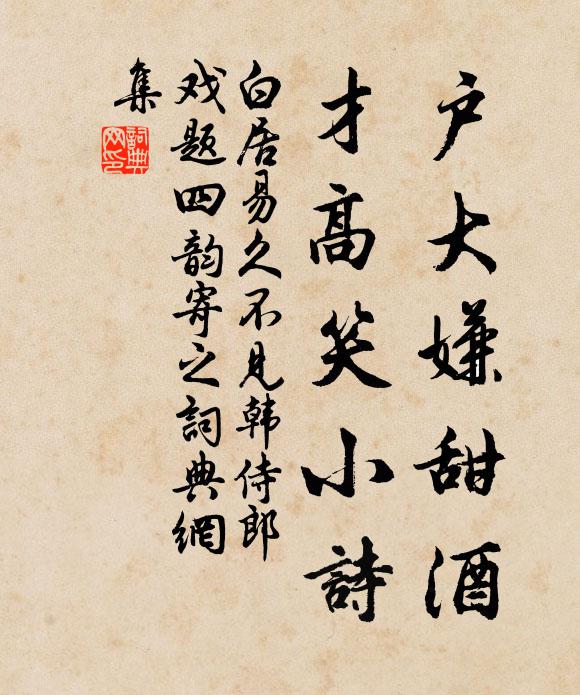 户大嫌甜酒
才高笑小詩
白居易久不見韩侍郎
戏题四韵寄之詞典網
集
詞典网印